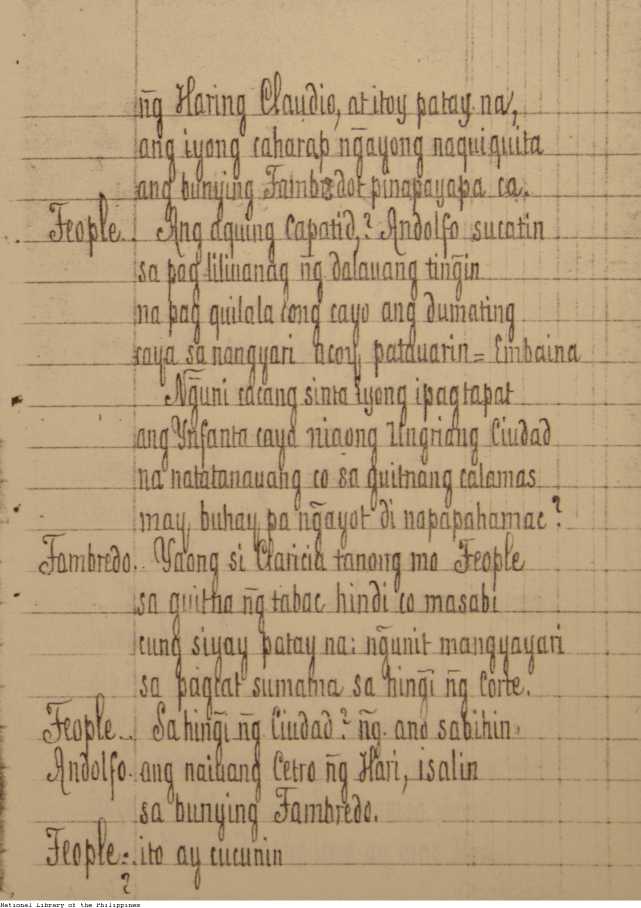 n̄g Haring Claudio, at itoy patay na,
ang iyong caharap n̄gayong naquiquita
ang bunying Fambredot pinapayapa ca.
Feople.. Ang aquing Capatid,? Andolfo sucatin
sa pag liliuanag n̄g dalauang tin̄gin
na pag quilala cong cayo ang dumating
caya sa nangyari acoy, patauarin = Embaina
N̄guni cacang sinta iyong ipagtapat
ang Ynfanta caya niaong Ungriang Ciudad
na natatanauang co sa guitnang calamas
may, buhay pa n̄gayot di napapahamac?
Fambredo.. Yaong si Claricia tanong mo Feople
sa guitna n̄g tabac hindi co masabi
cung siyay patay na: n̄gunit mangyayari
sa pagcat sumama sa hin̄gi n̄g Corte.
Feople.. Sa hin̄gi n̄g Ciudad? n̄g. ano sabihin.
Andolfo. ang naiuang Cetro n̄g Hari, isalin
sa bunying Fambredo.
Feople.. ito ay cucunin
?
National Library of the Philippines